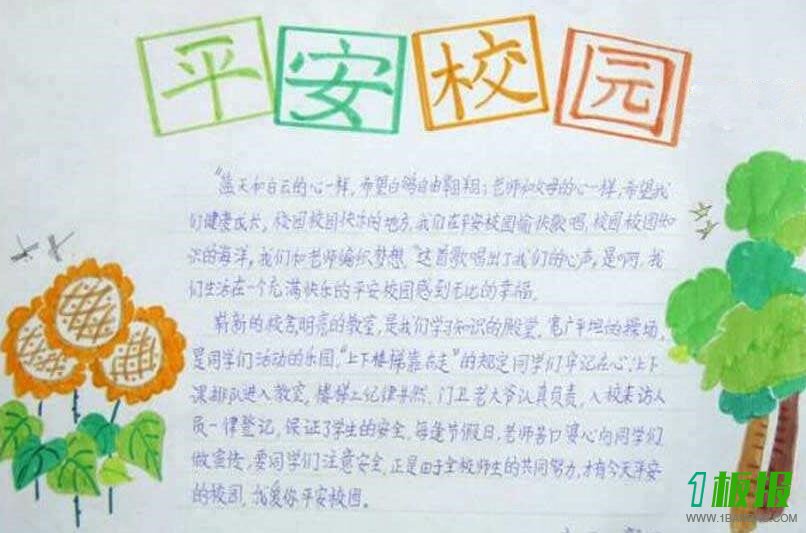 平安校园
"蓝天和白云的心一样，希望白鸽自由翱翔；老师和父母的心一样，希望我
们健康成长，校园校园快乐的地方，我们在平安校园愉快歌唱，校园校园知
识的海洋，我们和老师编织梦想。"这首歌唱出了我们的心声，是啊，我
们生活在一个充满快乐的平安校园感到无比的幸福。
崭新的校舍，明亮的教室，是我们学习知识的殿堂，宽广平坦的操场，
是同学们活动的乐园，"上下楼梯靠右走"的规定同学们牢记在心，上下
课排队进入教室，楼梯上纪律井然，门卫老大爷认真负责，入校来访人
员一律登记，保证了学生的安全，每逢节假日，老师苦口婆心向同学们
做宣传，要同学们注意安全，正是由于全校师生的共同努力，才有今天平安
的校园，我爱你平安校园。
1板报
WWW.1BANBAO.COM